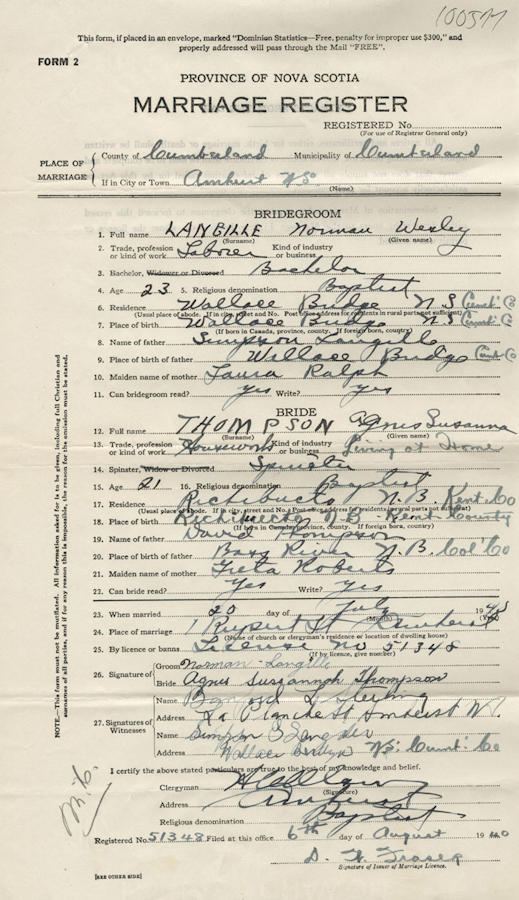 1005M
This form, if placed in an envelope, marked "Dominion Statistics—Free, penalty for improper use $300," and
properly addressed will pass through the Mail "FREE".
FORM 2
PROVINCE OF NOVA SCOTIA
MARRIAGE REGISTER
REGISTERED No.
(For use of Registrar General only)
PLACE OF MARRIAGE
County of Cumberland Municipality of Cumberland
If in City or Town Amherst NS
(Name)
BRIDEGROOM
1. Full name LANGILLE Norman Wesley
(Surname) (Given name)
2. Trade, profession or kind of work Laborer Kind of industry or business
3. Bachelor, Widower or Divorced Bachelor
4. Age 23 5. Religious denomination Baptist
6. Residence Wallace Bridge N.S Cumb. C
(Usual place of abode. If in city, street and No. Post office address for residents in rural parts not sufficient)
7. Place of birth Wallace Bridge N.S Cumb. C
(If born in Canada, province, county. If foreign born, country)
8. Name of father Simpson Langille
9. Place of birth of father Wallace Bridge Cumb Co
10. Maiden name of mother Laura Ralph
11. Can bridegroom read? yes Write? yes
BRIDE
12. Full name THOMPSON Agnes Susanna
(Surname) (Given name)
13. Trade, profession or kind of work Housework Kind of industry or business Living at Home
14. Spinster, Widow or Divorced Spinster
15. Age 21 16. Religious denomination Baptist
17. Residence Richibucto N.B. Kent Co
(Usual place of abode. If in city, street and No. Post office address for residents in rural parts not sufficient)
18. Place of birth Richibucto N B Kent County
(If born in Canada, province, county. If foreign born, country)
19. Name of father David Thompson
20. Place of birth of father River N.B.
21. Maiden name of mother Roberts
22. Can bride read? Yes Write? Yes
23. When married 20 day of July 19
(Month)
24. Place of marriage 1 Rupert St Amherst
(Name of church or clergyman's residence or location of dwelling house)
25. By licence or banns License No 51348
(If by licence, give number)
26. Signature of
Groom Norman Langille
Bride Agnes Susannah Thompson
27. Signatures of Witnesses
Name
Address La Planche St Amherst N.S.
Name
Address Wallace Bridge NS. Cumb. Co
I certify the above stated particulars are true to the best of my knowledge and belief.
Clergyman
(Signature)
Address Amherst
Religious denomination Baptist
Registered No. 51348 Filed at this office 6th day of August 19
D. W. Fraser
Signature of Issuer of Marriage Licence.
[SEE OTHER SIDE]
NOTE.—This form must not be mutilated. All information asked for is to be given, including full Christian and
surnames of all parties, and if for any reason this is impossible, the reason for the omission must be stated.